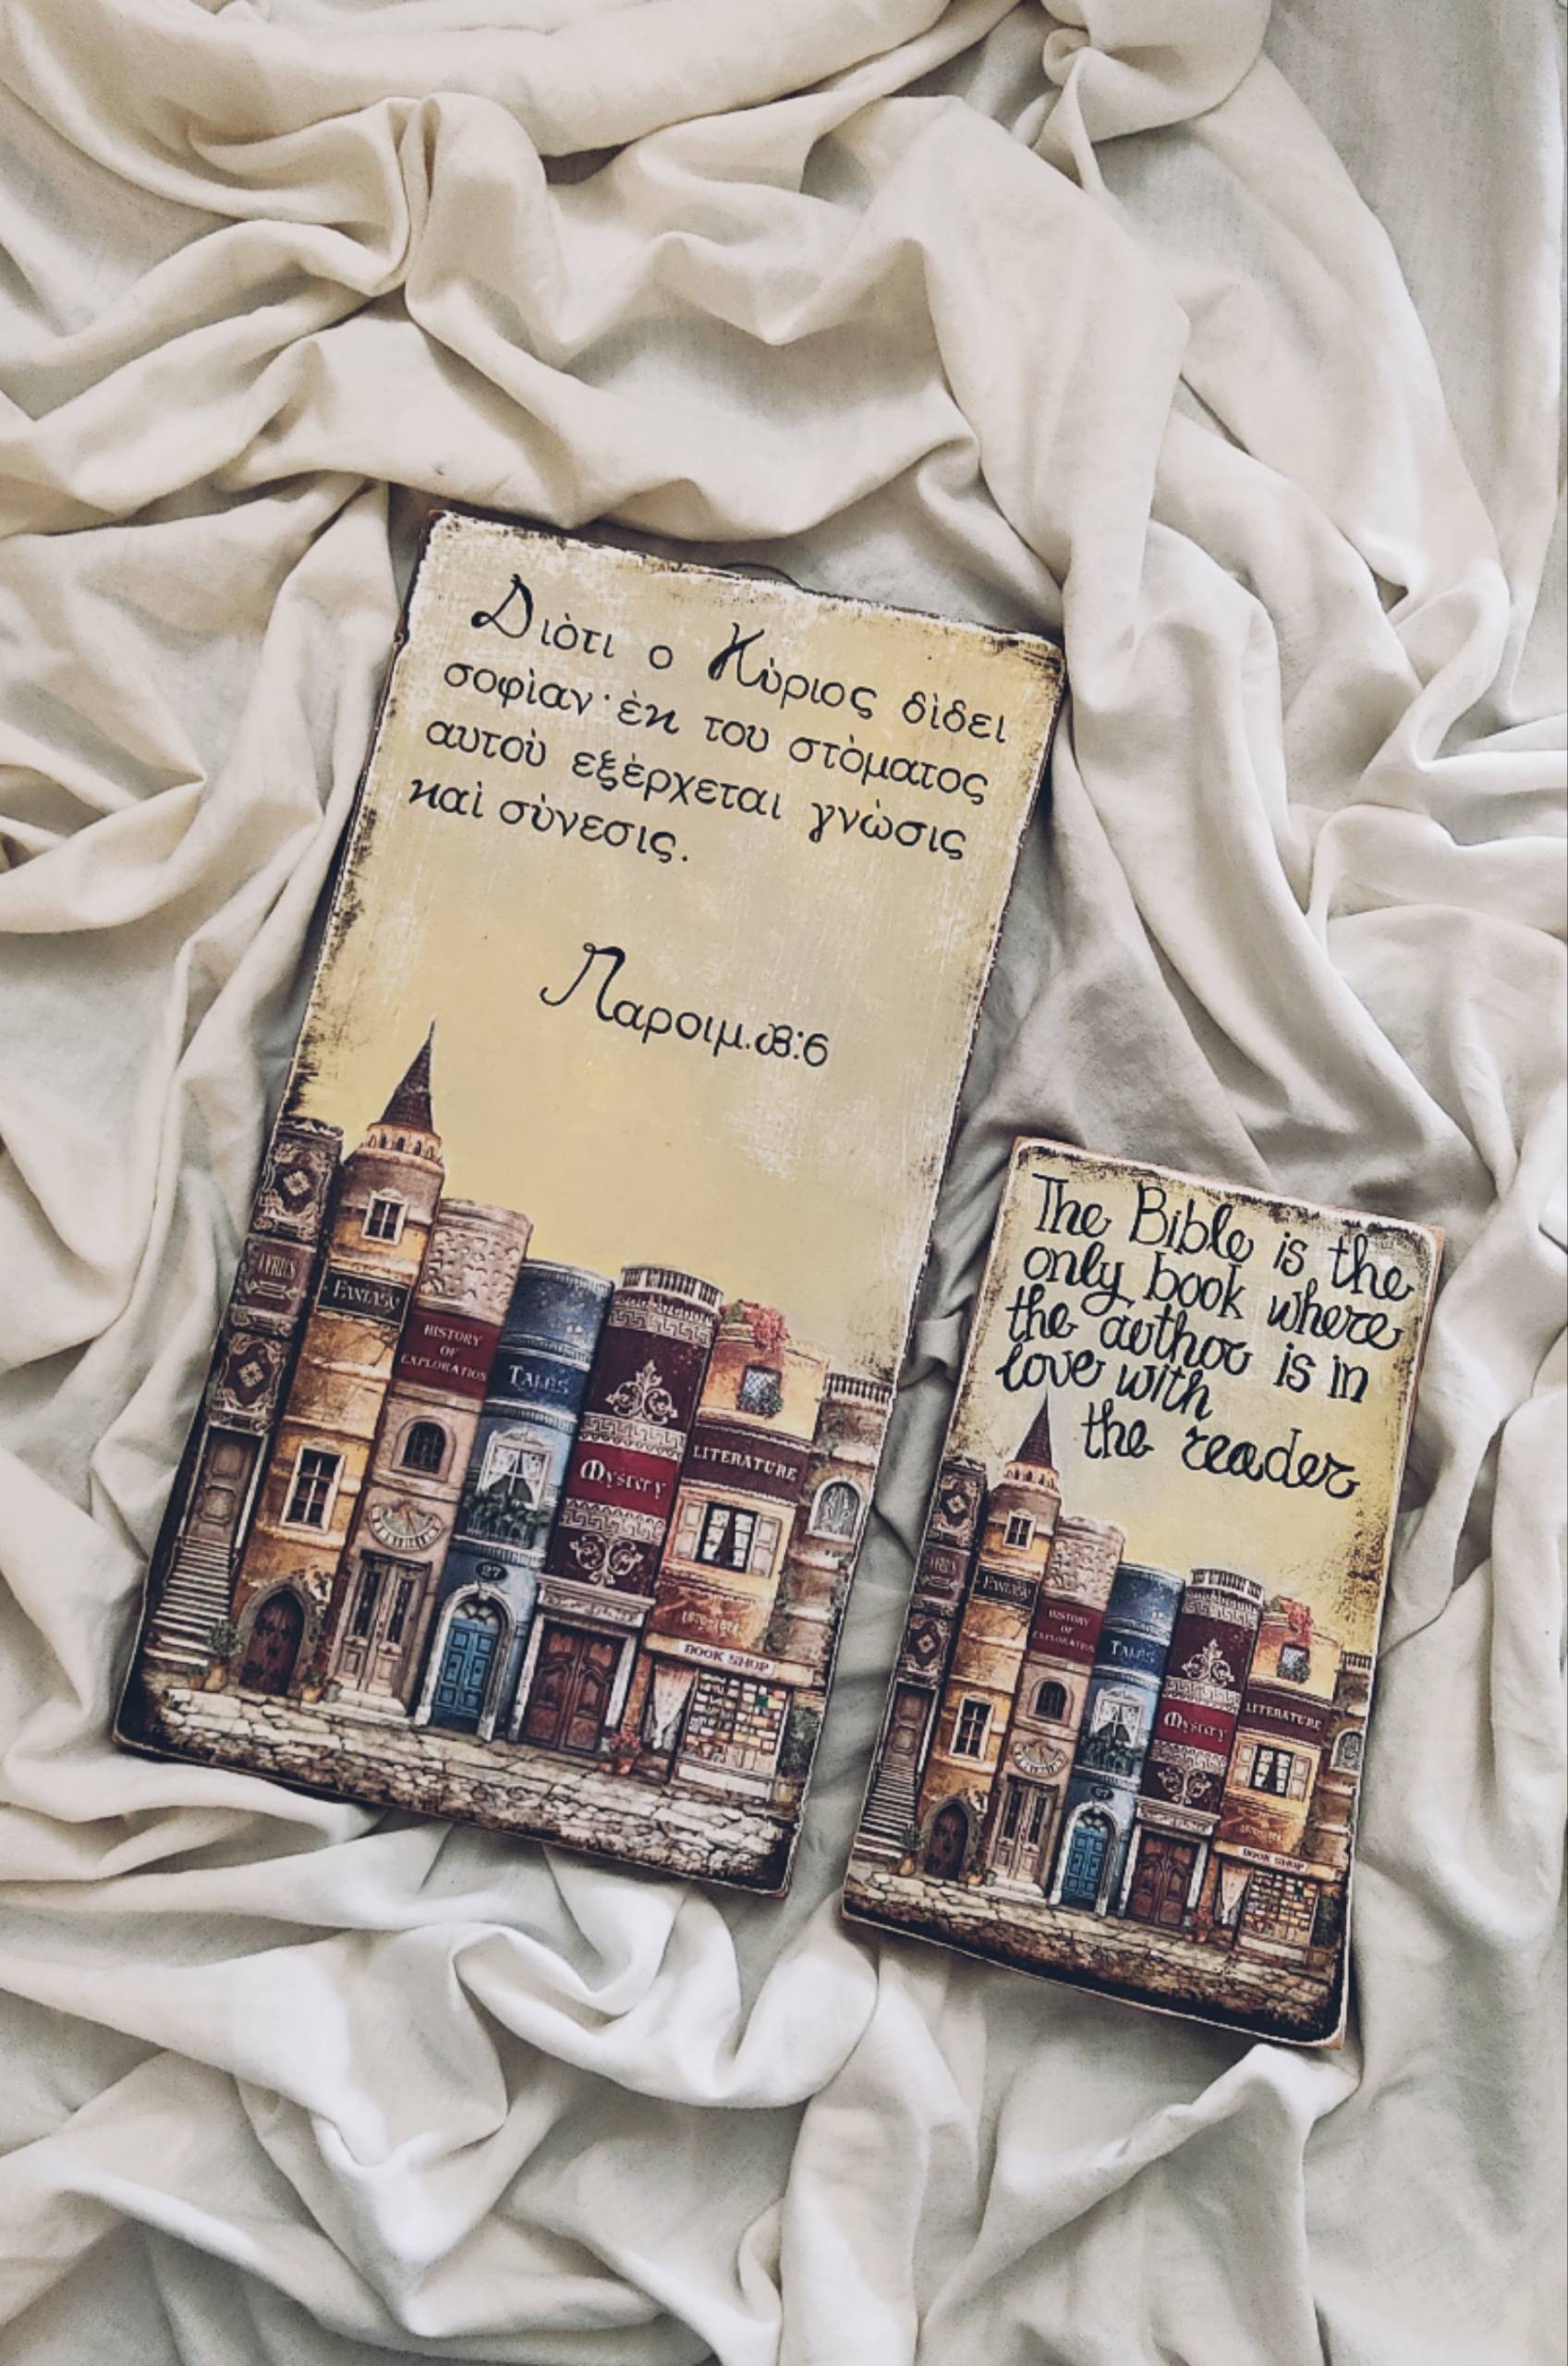 Διὸτι ο Κὺριος δὶδει
σοφὶαν· ἐκ του στὸματος
αυτοὺ εξὲρχεται γνὼσις
καὶ σὺνεσις.
Παροιμ. β:6
LYRICS
FANTASY
HISTORY
OF
EXPLORATION
TALES
MYSTERY
LITERATURE
27
BOOK SHOP
The Bible is the
only book where
the author is in
love with
the reader
FANTASY
HISTORY
OF
EXPLORATION
TALES
MYSTERY
LITERATURE
27
BOOK SHOP